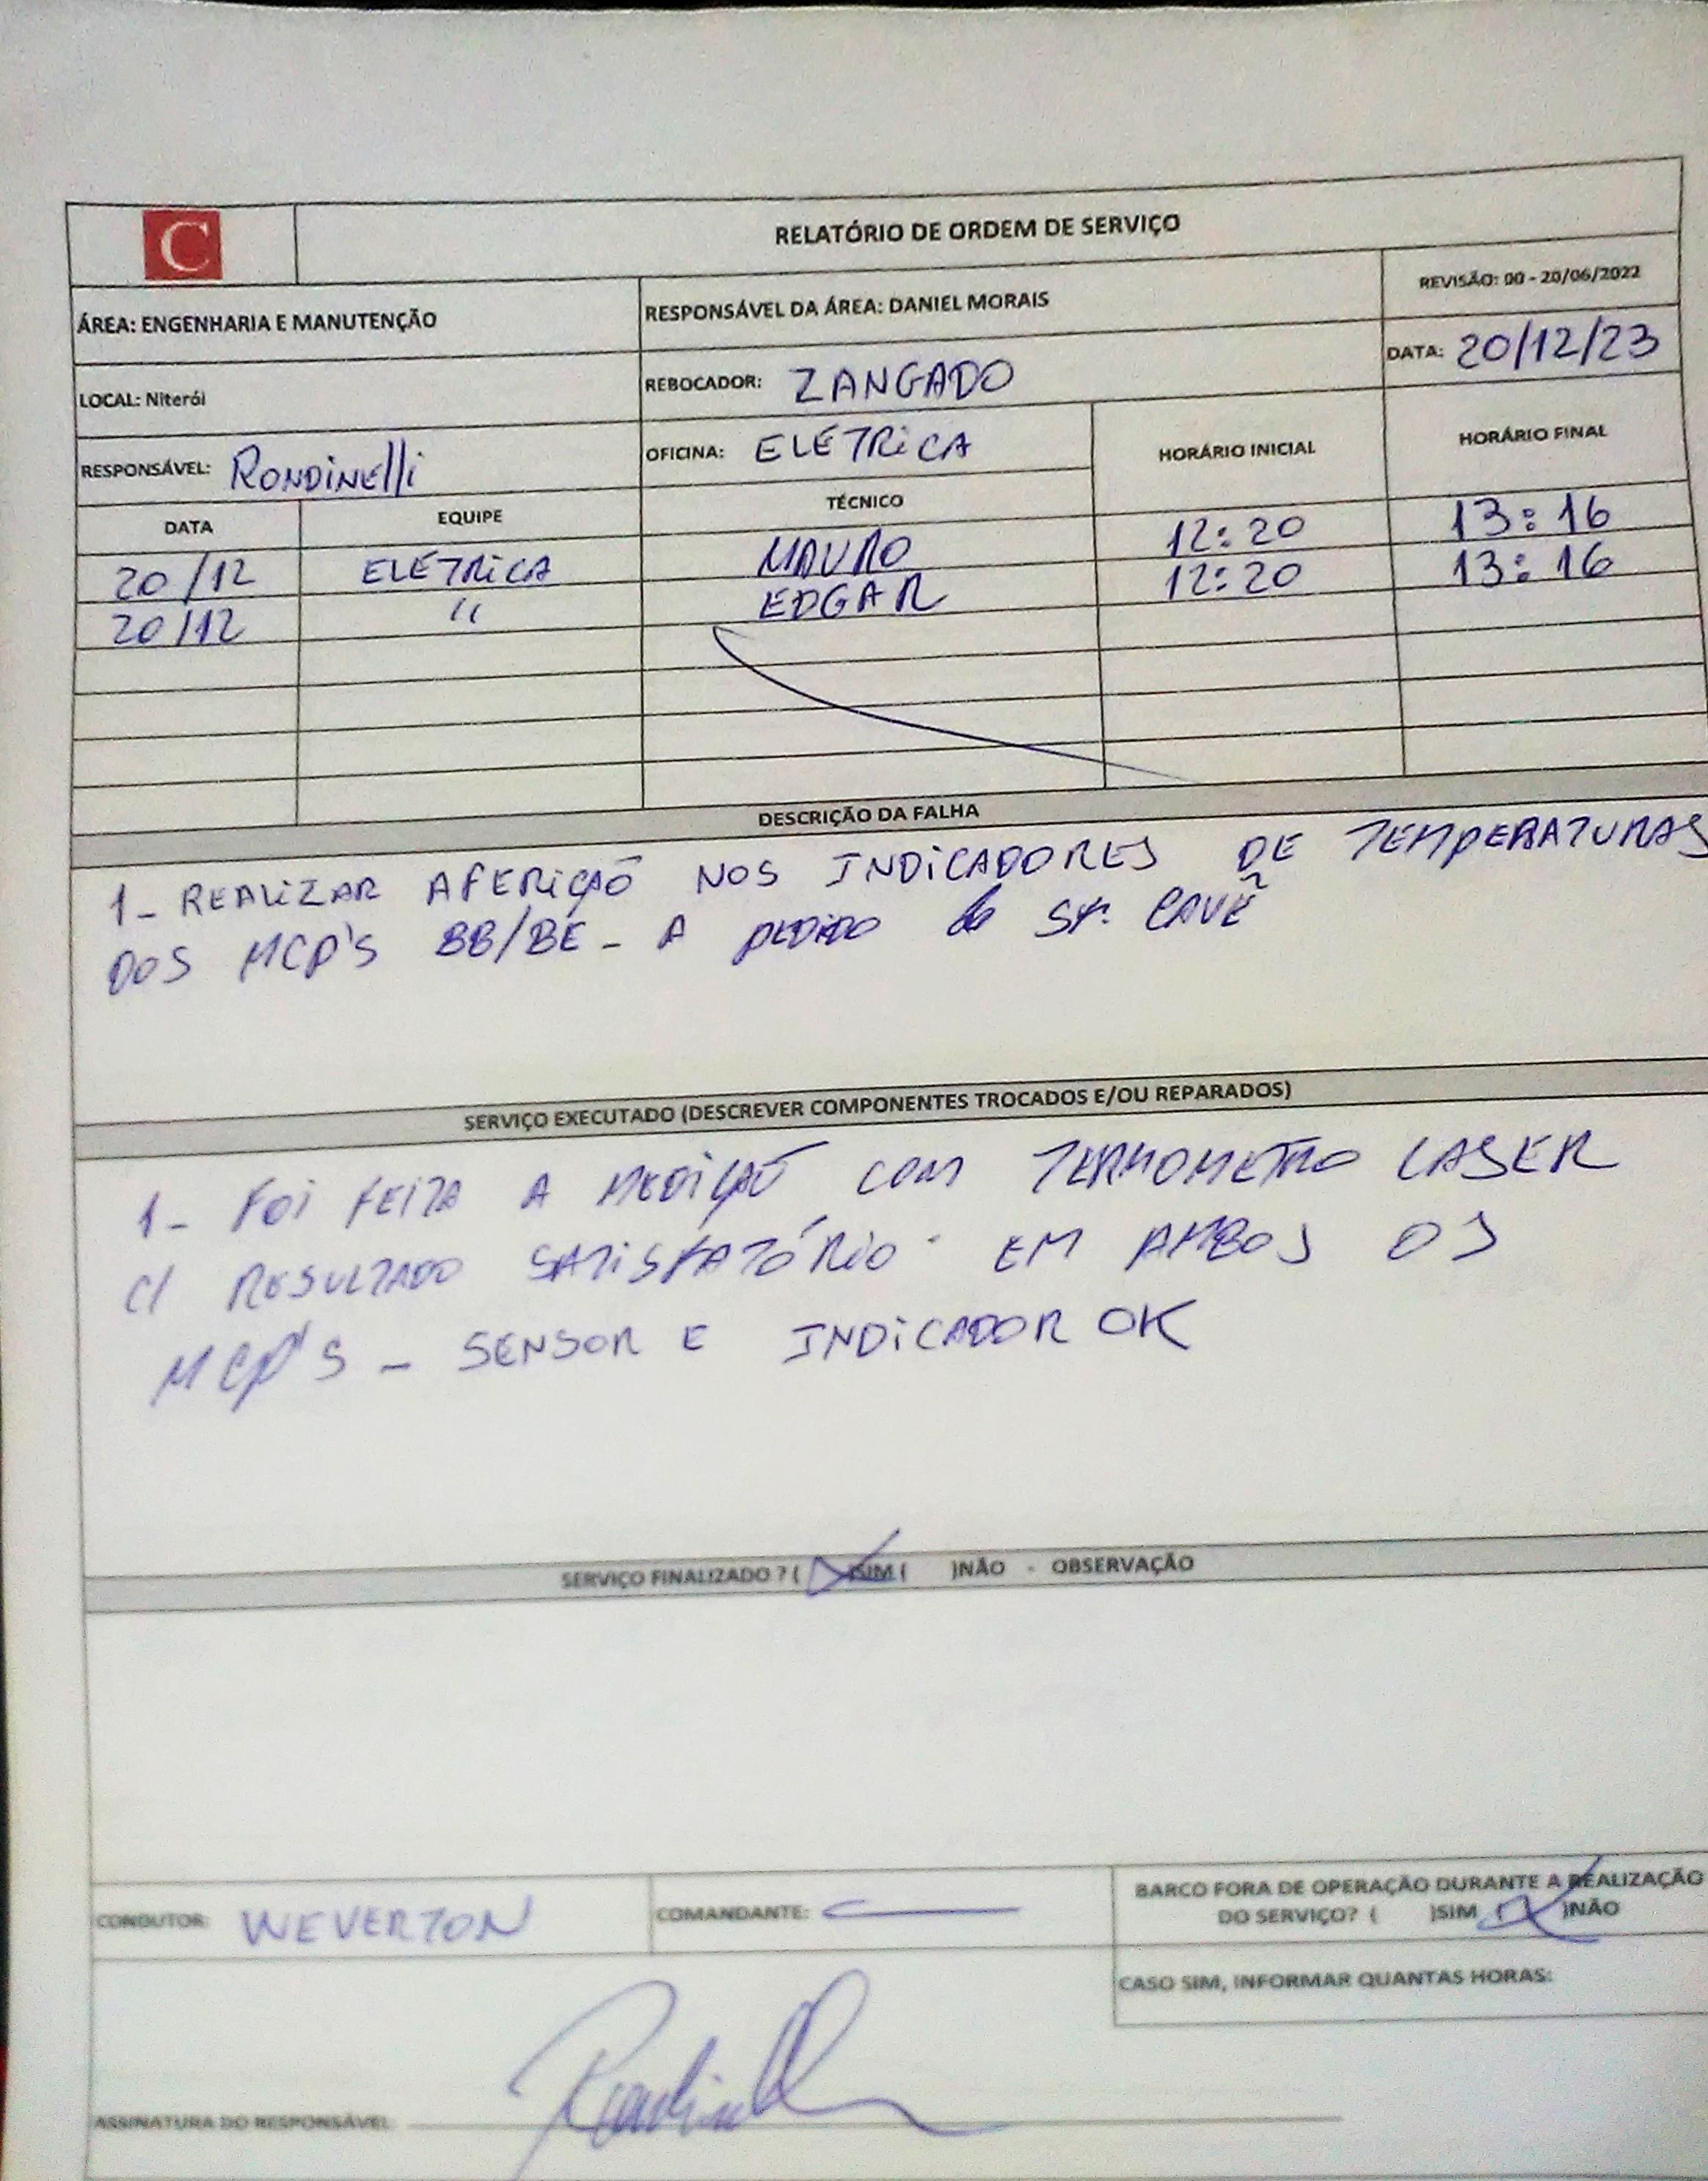 C
RELATÓRIO DE ORDEM DE SERVIÇO
REVISÃO: 00 - 20/06/2022
ÁREA: ENGENHARIA E MANUTENÇÃO
RESPONSÁVEL DA ÁREA: DANIEL MORAIS
DATA: 20/12/23
LOCAL: Niterói
REBOCADOR: ZANGADO
RESPONSÁVEL: RONDiNElli
OFICINA: ELÉTRiCA
HORÁRIO INICIAL
HORÁRIO FINAL
DATA
EQUIPE
TÉCNICO
20/12 ELÉTRiCA MAURO 12:20 13:16
20/12 " EDGAR 12:20 13:16
DESCRIÇÃO DA FALHA
1- REALIZAR AFERiÇÃO NOS INDiCADORES DE TEMPERATURAS
DOS MCP'S BB/BE - A PEDIDO do Sr. CAVÊ
SERVIÇO EXECUTADO (DESCREVER COMPONENTES TROCADOS E/OU REPARADOS)
1- FOi FEITA A MEDiÇÃO COM TERMOMETRO LASER
C/ RESULTADO SATiSFATÓRiO - EM AMBOS OS
MCP'S - SENSOR E INDiCADOR OK
SERVIÇO FINALIZADO ? ( X )SIM ( )NÃO - OBSERVAÇÃO
CONDUTOR: WEVERTON
COMANDANTE: —
BARCO FORA DE OPERAÇÃO DURANTE A REALIZAÇÃO
DO SERVIÇO? ( )SIM ( X )NÃO
CASO SIM, INFORMAR QUANTAS HORAS:
ASSINATURA DO RESPONSÁVEL